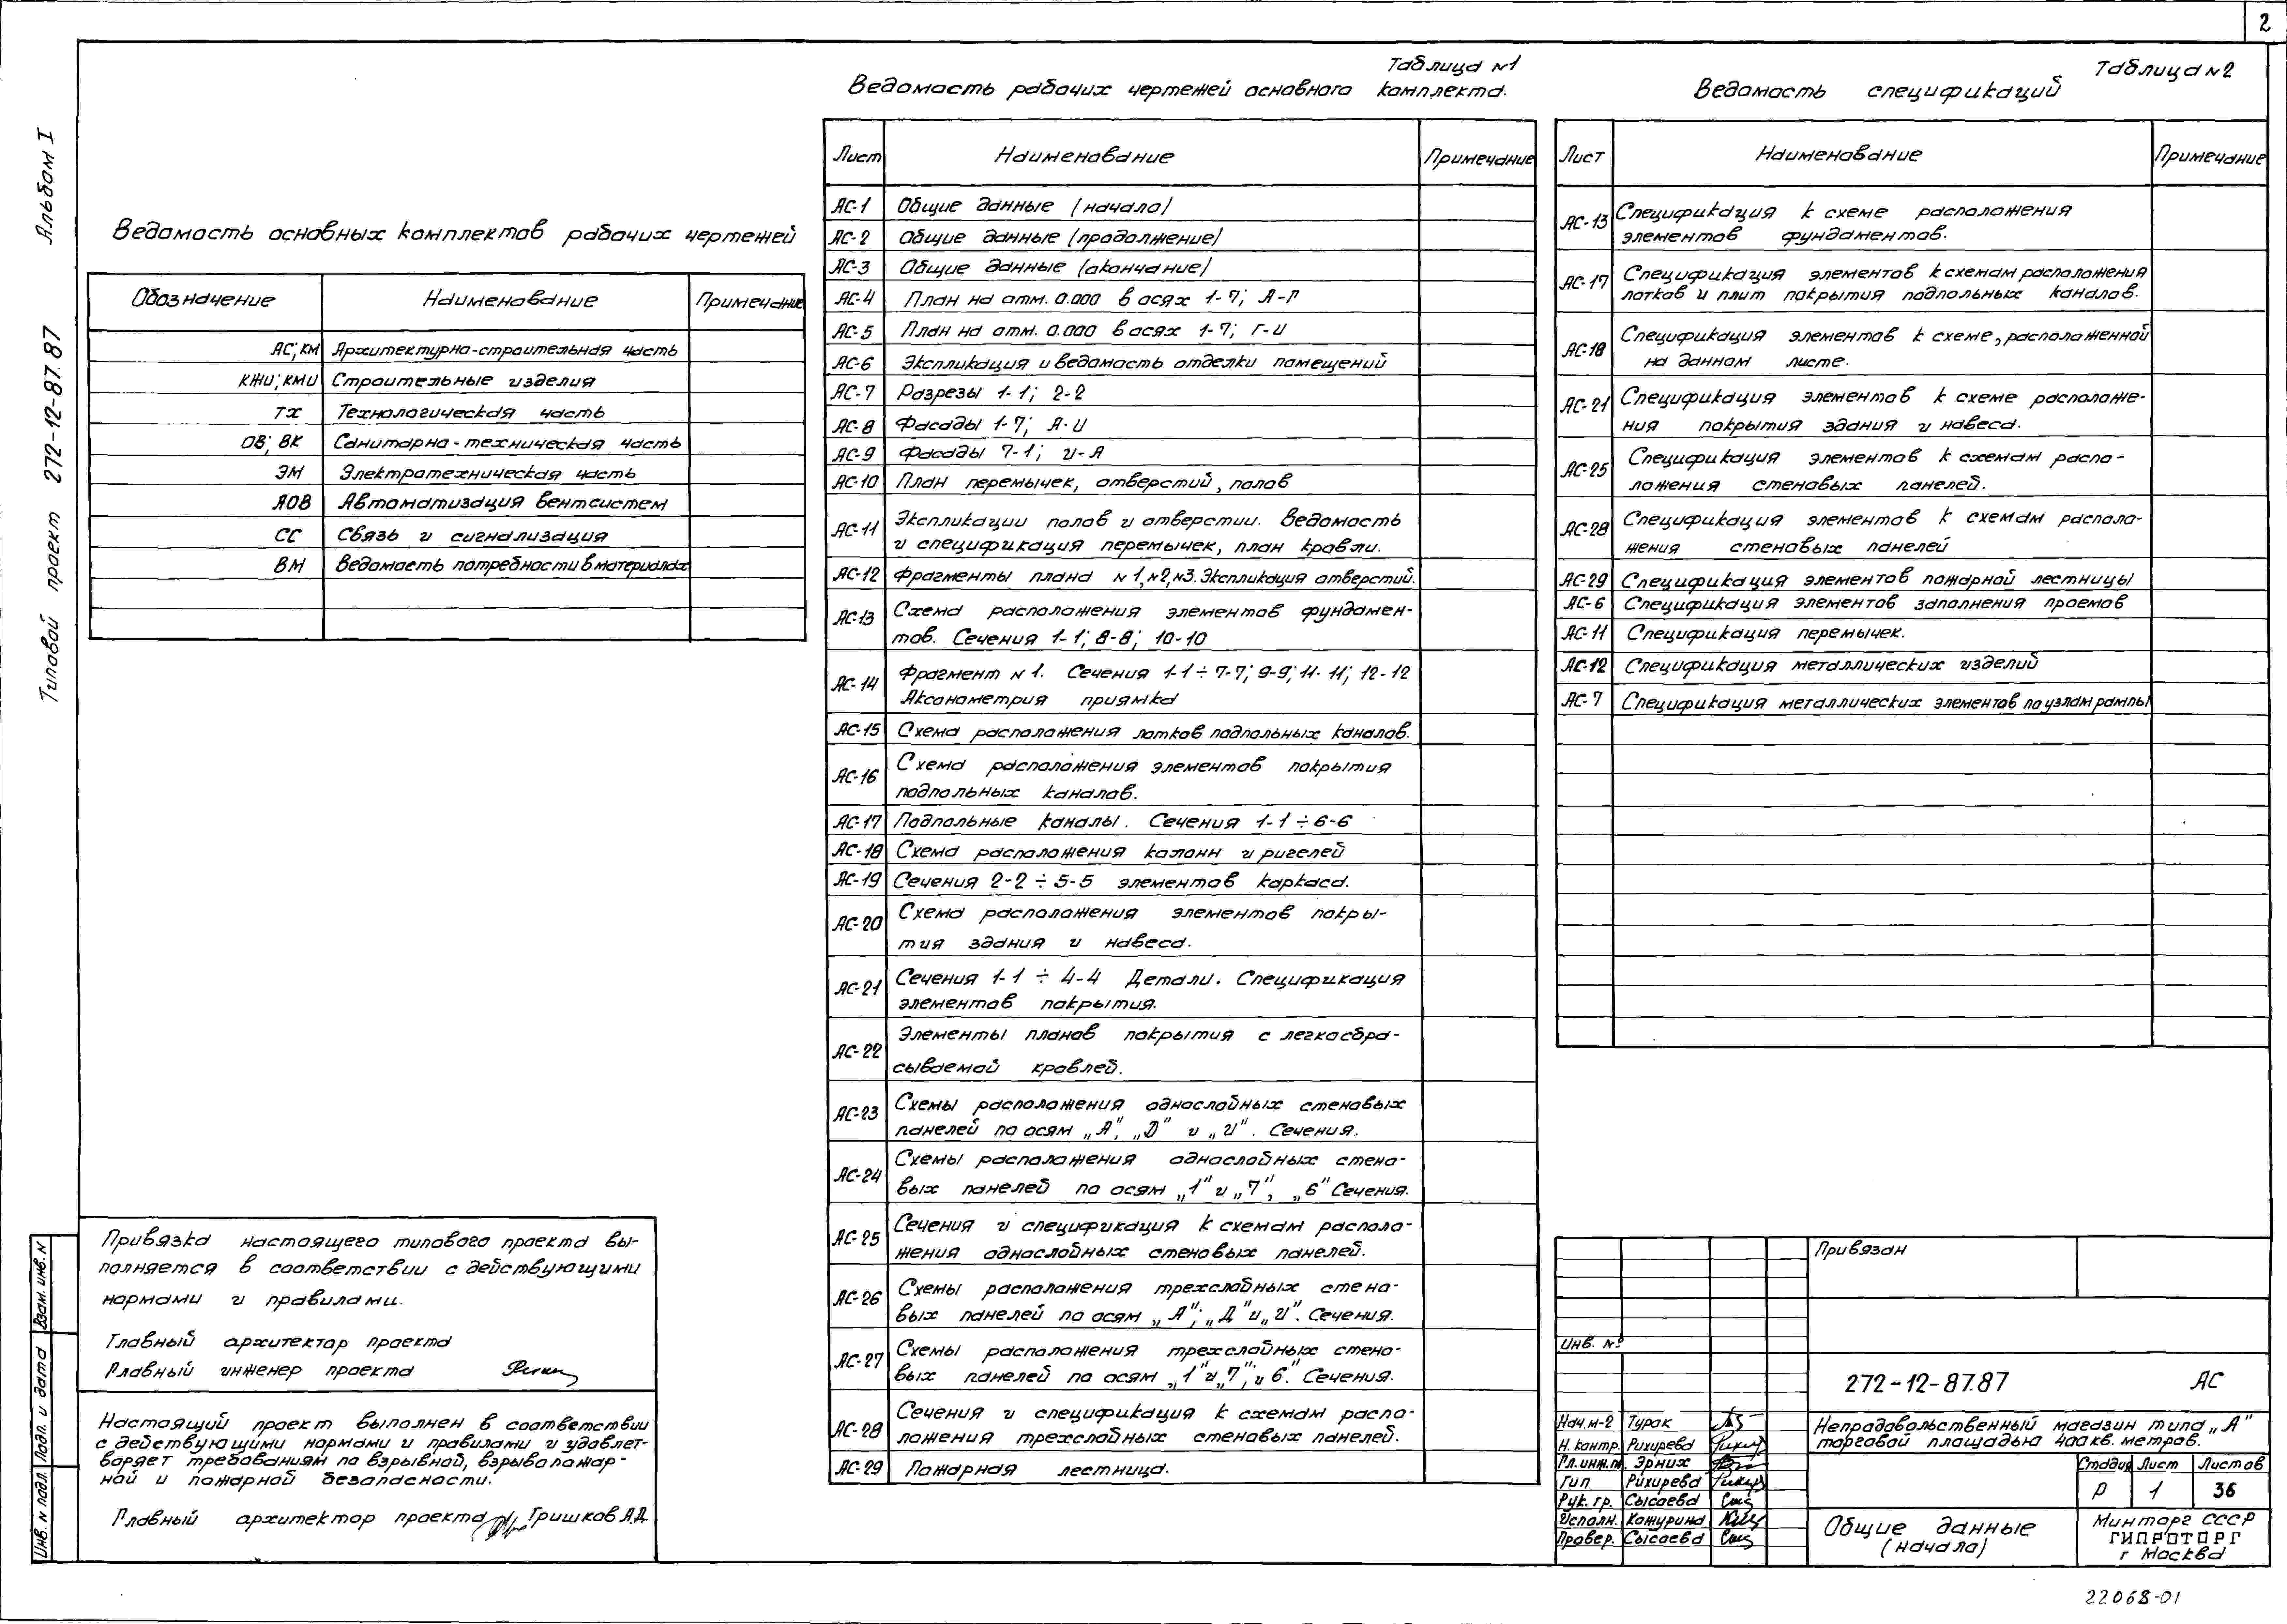 2
Альбом I
Типовой проект 272-12-87.87
Ведомость основных комплектов рабочих чертежей
Обозначение Наименование Примечание
АС; КМ Архитектурно-строительная часть
КЖИ; КМИ Строительные изделия
ТХ Технологическая часть
ОВ; ВК Санитарно-техническая часть
ЭМ Электротехническая часть
АОВ Автоматизация вентсистем
СС Связь и сигнализация
ВМ Ведомость потребности в материалах
Таблица №1
Ведомость рабочих чертежей основного комплекта.
Лист Наименование Примечание
АС-1 Общие данные (начало)
АС-2 Общие данные (продолжение)
АС-3 Общие данные (окончание)
АС-4 План на отм. 0.000 в осях 1-7; А-Г
АС-5 План на отм. 0.000 в осях 1-7; Г-И
АС-6 Экспликация и ведомость отделки помещений
АС-7 Разрезы 1-1; 2-2
АС-8 Фасады 1-7; А-И
АС-9 Фасады 7-1; И-А
АС-10 План перемычек, отверстий, полов
АС-11 Экспликации полов и отверстии. Ведомость
и спецификация перемычек, план кровли.
АС-12 Фрагменты плана №1,№2,№3. Экспликация отверстий.
АС-13 Схема расположения элементов фундамен-
тов. Сечения 1-1; 8-8; 10-10
АС-14 Фрагмент №1. Сечения 1-1÷7-7; 9-9; 11-11; 12-12
Аксонометрия приямка
АС-15 Схема расположения лотков подпольных каналов.
АС-16 Схема расположения элементов покрытия
подпольных каналов.
АС-17 Подпольные каналы. Сечения 1-1÷6-6
АС-18 Схема расположения колонн и ригелей
АС-19 Сечения 2-2÷5-5 элементов каркаса.
АС-20 Схема расположения элементов покры-
тия здания и навеса.
АС-21 Сечения 1-1÷4-4 Детали. Спецификация
элементов покрытия.
АС-22 Элементы планов покрытия с легкосбра-
сываемой кровлей.
АС-23 Схемы расположения однослойных стеновых
панелей по осям „А", „Д" и „И". Сечения.
АС-24 Схемы расположения однослойных стено-
вых панелей по осям „1" и „7"; „6" Сечения.
АС-25 Сечения и спецификация к схемам располо-
жения однослойных стеновых панелей.
АС-26 Схемы расположения трехслойных стено-
вых панелей по осям „А"; „Д" и „И". Сечения.
АС-27 Схемы расположения трехслойных стено-
вых панелей по осям „1" и „7"; „6". Сечения.
АС-28 Сечения и спецификация к схемам распо-
ложения трехслойных стеновых панелей.
АС-29 Пожарная лестница.
Таблица №2
Ведомость спецификаций
Лист Наименование Примечание
АС-13 Спецификация к схеме расположения
элементов фундаментов.
АС-17 Спецификация элементов к схемам расположения
лотков и плит покрытия подпольных каналов.
АС-18 Спецификация элементов к схеме, расположенной
на данном листе.
АС-21 Спецификация элементов к схеме расположе-
ния покрытия здания и навеса.
АС-25 Спецификация элементов к схемам распо-
ложения стеновых панелей.
АС-28 Спецификация элементов к схемам располо-
жения стеновых панелей
АС-29 Спецификация элементов пожарной лестницы
АС-6 Спецификация элементов заполнения проемов
АС-11 Спецификация перемычек.
АС-12 Спецификация металлических изделий
АС-7 Спецификация металлических элементов по узлам рампы
Привязка настоящего типового проекта вы-
полняется в соответствии с действующими
нормами и правилами.
Главный архитектор проекта
Главный инженер проекта
Настоящий проект выполнен в соответствии
с действующими нормами и правилами и удовлет-
воряет требованиям по взрывной, взрывопожар-
ной и пожарной безопасности.
Главный архитектор проекта Гришков А.Д.
Взам. инв. №
Подп. и дата
Инв. № подл.
Привязан
Инв. №
272-12-87.87 АС
Нач. м-2 Турак
Н. контр. Рихирева
Гл. инж. п. Эрних
Гип Рихирева
Рук. гр. Сысоева
Исполн. Кожурина
Провер. Сысоева
Непродовольственный магазин типа „А"
торговой площадью 400 кв. метров.
Стадия Лист Листов
Р 1 36
Общие данные
(начало)
Минторг СССР
ГИПРОТОРГ
г Москва
22068-01